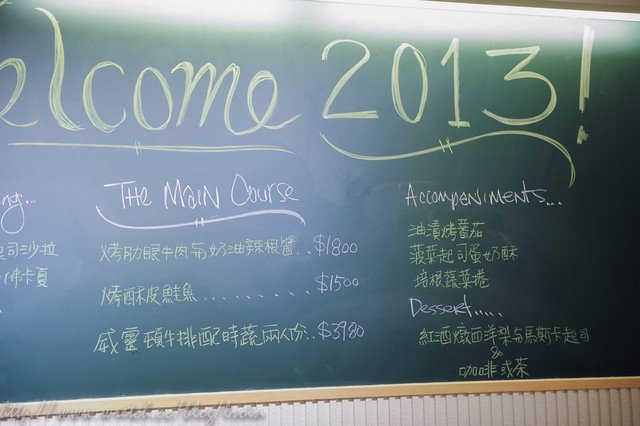 elcome 2013!
ng...
起司沙拉
佛卡夏
The Main Course
烤肋眼牛肉与奶油辣根醬..$1800
烤酥皮鮭魚.........$1500
威靈頓牛排配時蔬兩人份..$3980
Accompaniments...
油漬烤蕃茄
菠菜起司蛋奶酥
培根蔬菜捲
Dessert.....
紅酒燉西洋梨与馬斯卡起司
&
咖啡或茶